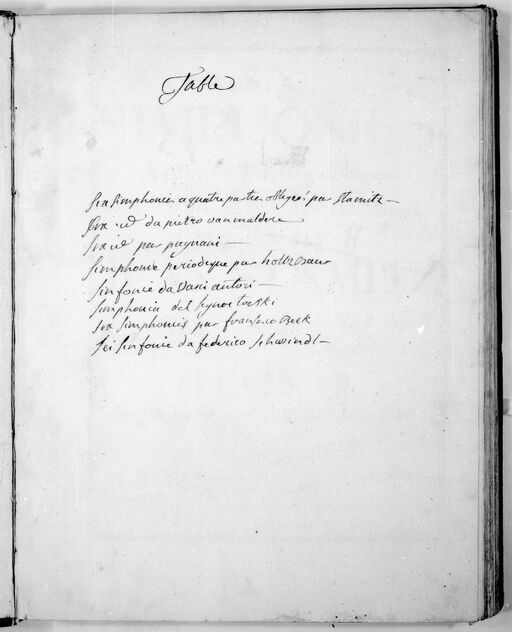 Table
Six Simphonies a quatre parties obligés par Stamitz —
Six id da pietro vanmaldere
Six id par pugnani —
Simphonie periodique par holtzbaur
Sinfonie da Varii autori —
Simphonia del Signor toeski
Six Simphonies par fransesco Beck
Sei Sinfonie da federico Schwindl —